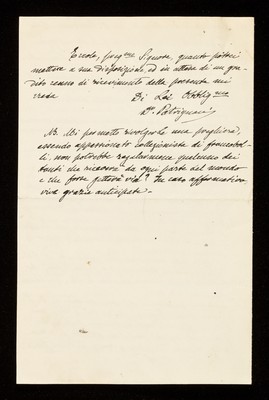 Eccole, preg.mo Signore, quanto potei
mettere a sua disposizione, ed in attesa di un gra-
dito cenno di ricevimento della presente mi
creda
Di Lei Obblig.mo
Dr. Patrignani
NB. Mi permetto rivolgerle una preghiera,
essendo appassionato collezionista di francobol-
li, non potrebbe regalarmene qualcuno dei
tanti che riceverà da ogni parte del mondo
e che forse getterà via? In caso affermativo
vive grazie anticipate.-